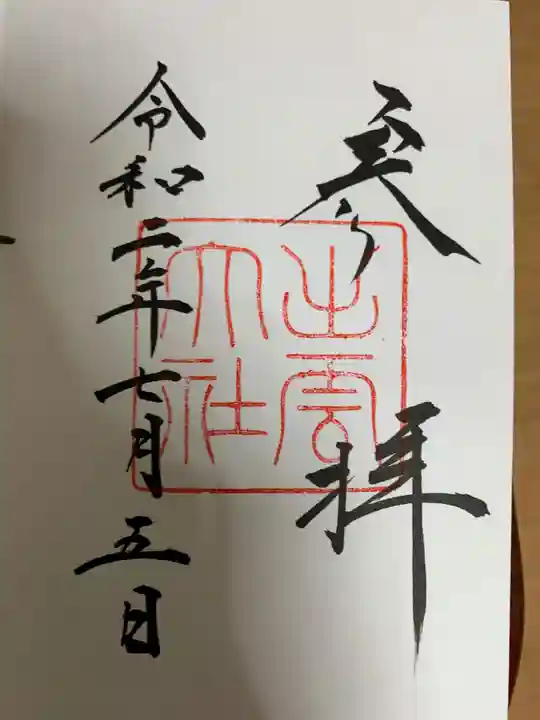 参拝
出雲
大社
令和二年七月五日